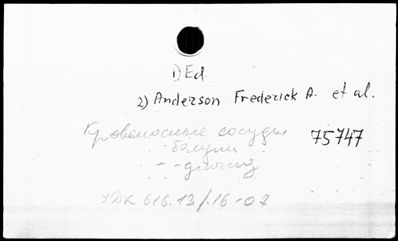 1) Ed.
2) Anderson Frederick A. et al.
Кровеносные сосуды 75747
- болезни
- - диагноз
УДК 616.13/.16-07